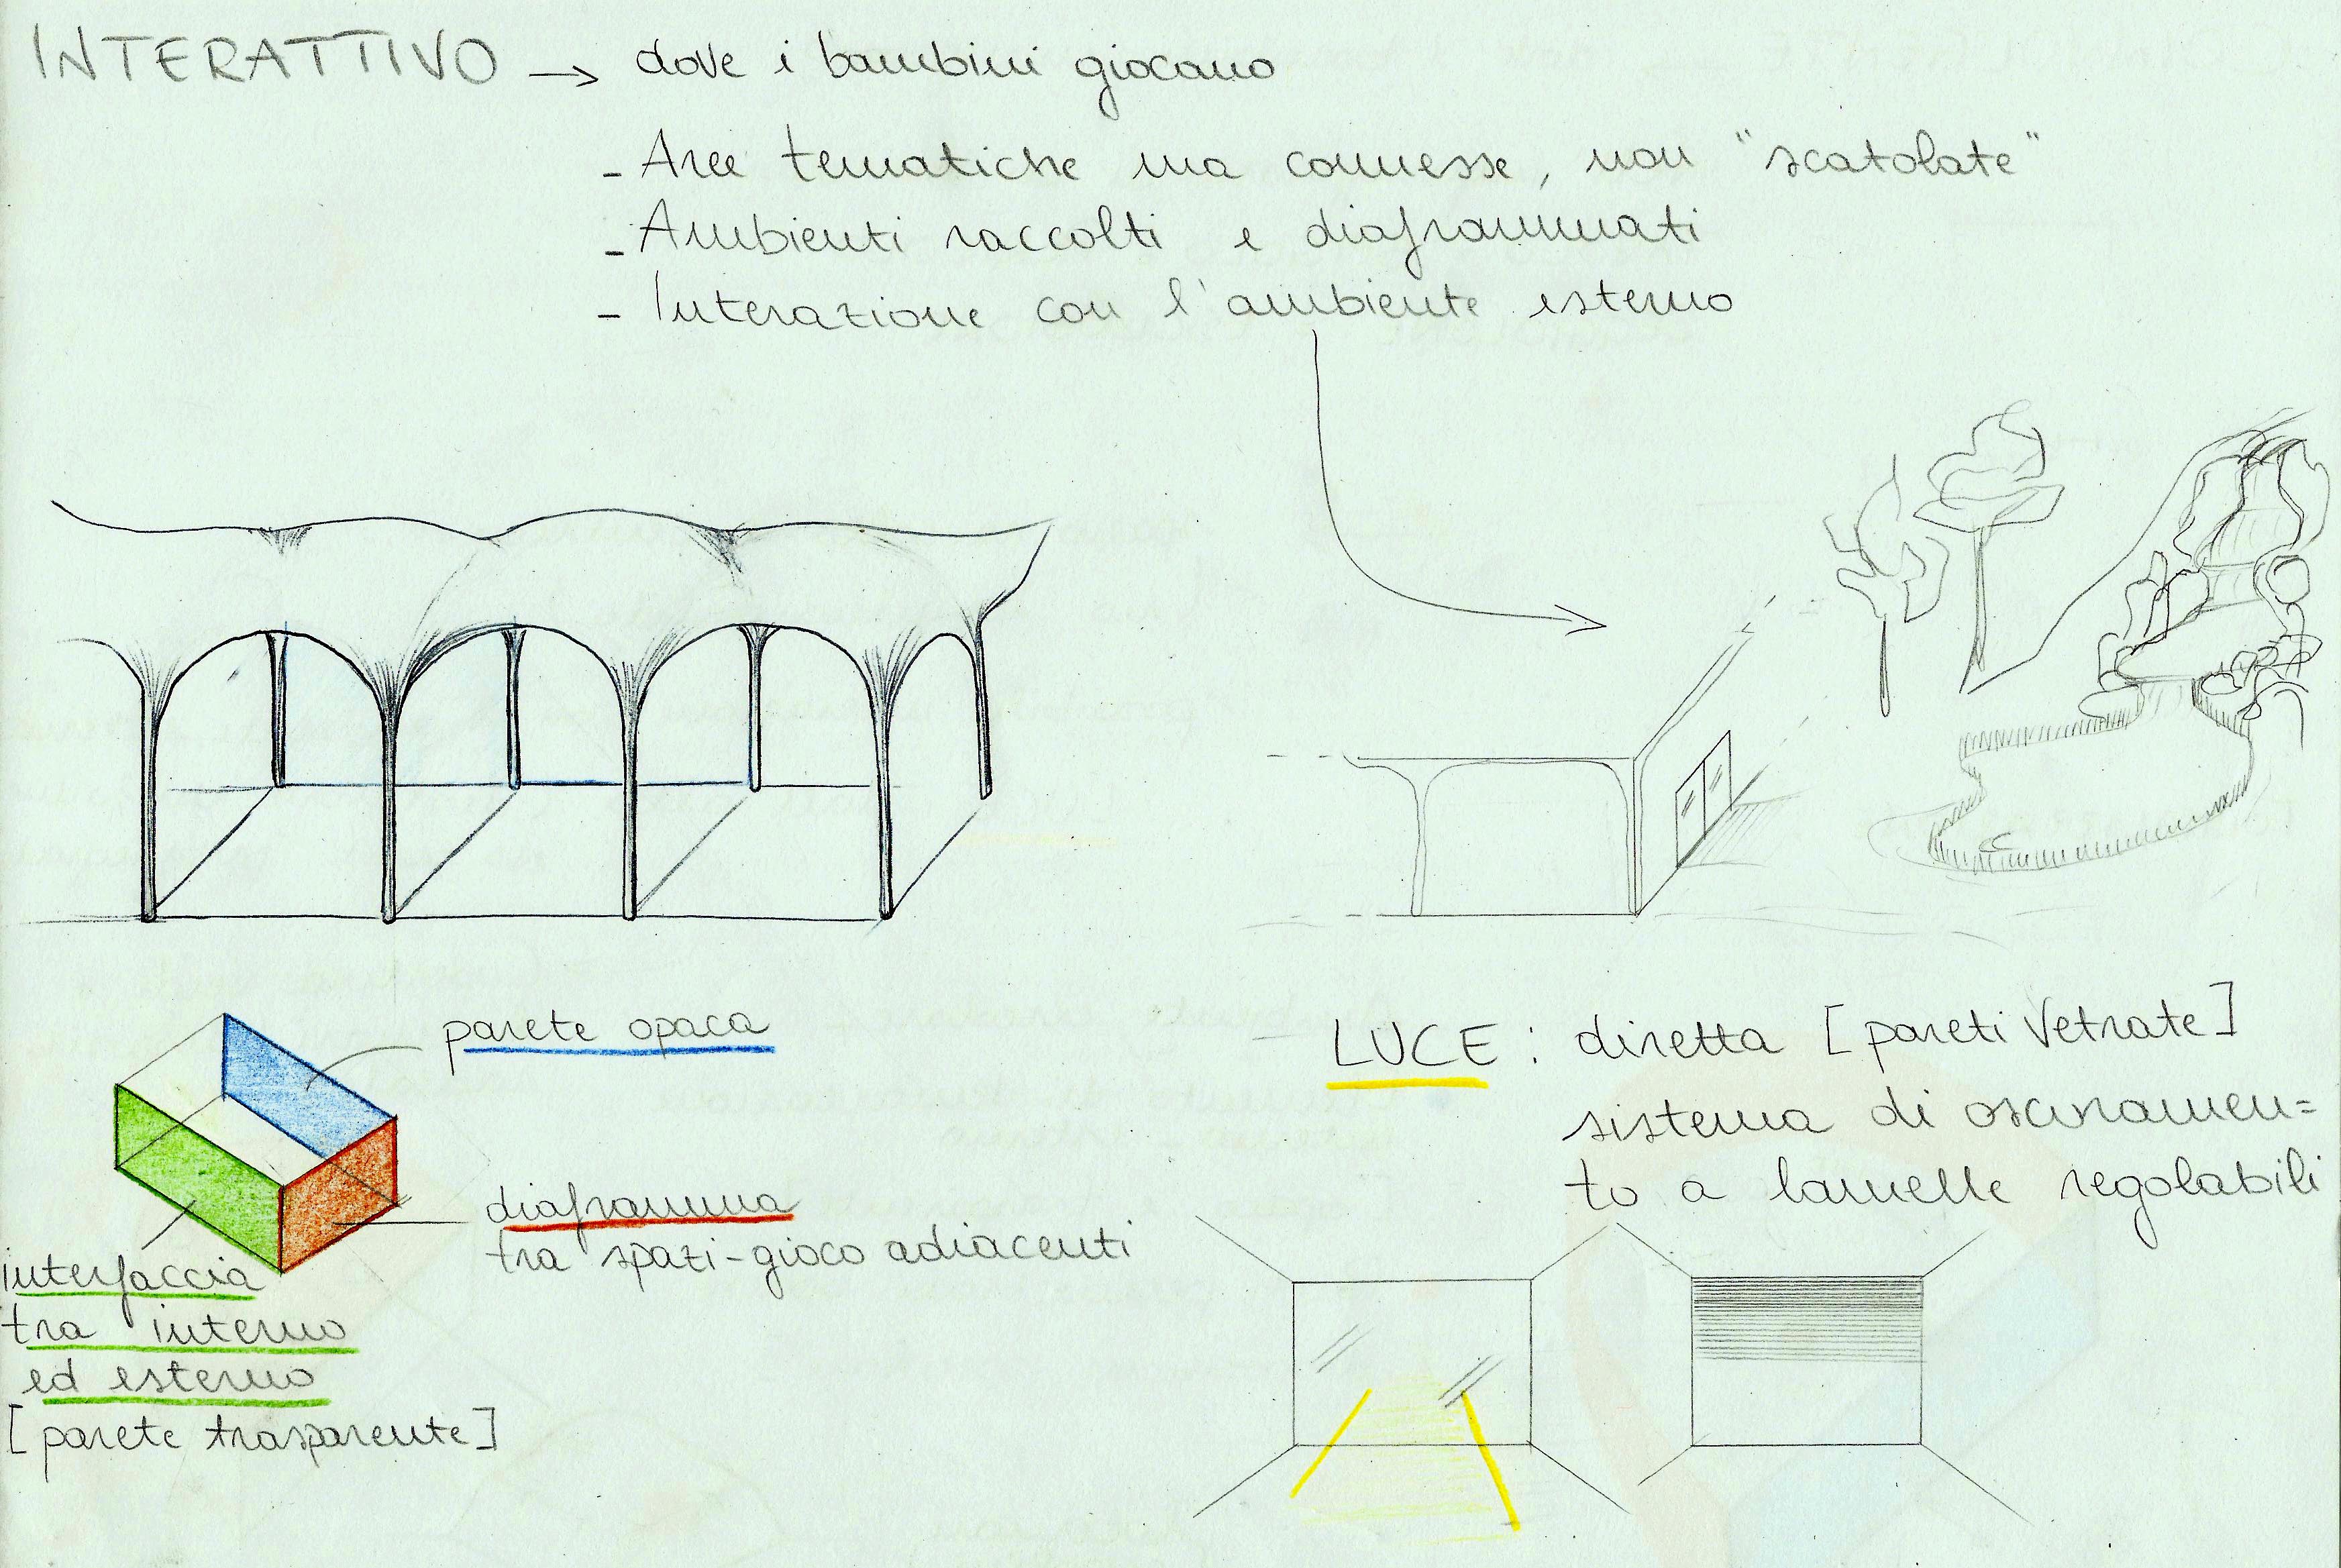 INTERATTIVO → dove i bambini giocano
- Aree tematiche ma connesse, non "scatolate"
- Ambienti raccolti e diaframmati
- Interazione con l'ambiente esterno
parete opaca
diaframma
tra spazi-gioco adiacenti
interfaccia
tra interno
ed esterno
[parete trasparente]
LUCE: diretta [pareti vetrate]
sistema di oscuramen=
to a lamelle regolabili